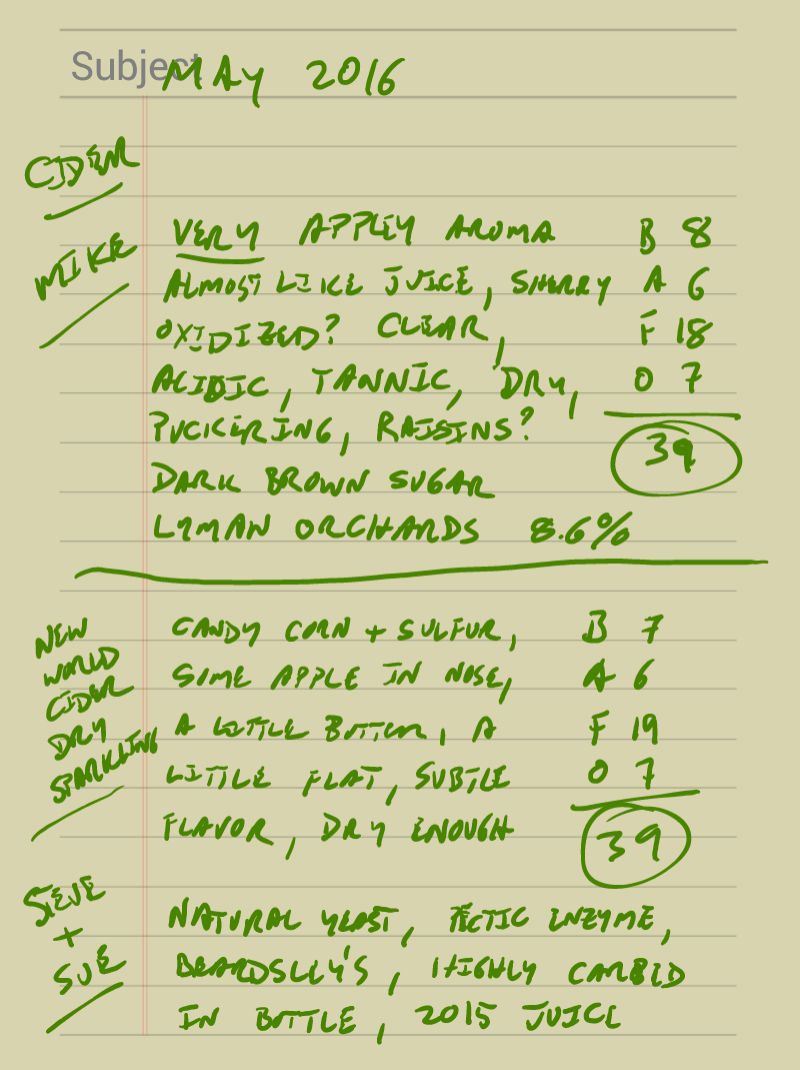 Subject MAY 2016
CIDER
MIKE
VERY APPLEY AROMA B 8
ALMOST LIKE JUICE, SHERRY A 6
OXIDIZED? CLEAR, F 18
ACIDIC, TANNIC, DRY, O 7
PUCKERING, RAISINS? 39
DARK BROWN SUGAR
LYMAN ORCHARDS 8.6%
NEW
WORLD
CIDER
DRY
SPARKLING
CANDY CORN + SULFUR, B 7
SOME APPLE IN NOSE, A 6
A LITTLE BOTTOM, A F 19
LITTLE FLAT, SUBTLE O 7
FLAVOR, DRY ENOUGH 39
STEVE
+
SUE
NATURAL YEAST, PECTIC ENZYME,
BEARDSLEY'S, HIGHLY CARBED
IN BOTTLE, 2015 JUICE